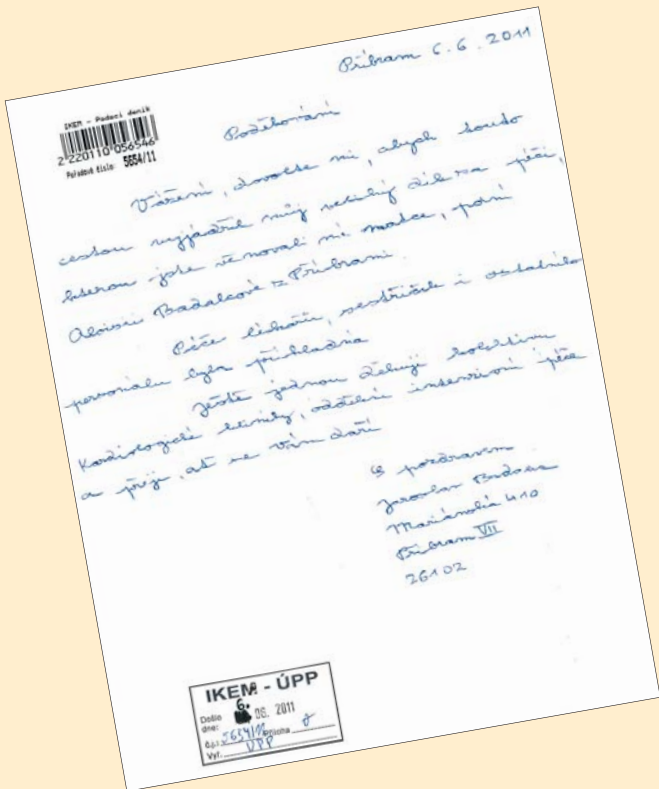 Příbram 6.6.2011
IKEM - Podací deník
2-220110-056546
Pořadové číslo: 5654/11
Poděkování
Vážení, dovolte mi, abych touto
cestou vyjádřil můj veliký dík za péči,
kterou jste věnovali mé matce, paní
Aloisii Badalcové z Příbrami.
Péče lékařů, sestřiček i ostatního
personálu byla příkladná
Ještě jednou děkuji kolektivu
Kardiologické kliniky, oddělení intenzivní péče
a přeji, ať se vám daří
S pozdravem
Jaroslav
Mariánská 410
Příbram VII
261 02
IKEM - ÚPP
Došlo
dne: 6. 06. 2011
č.j.: 5654/11 Příloha
Vyř. ÚPP